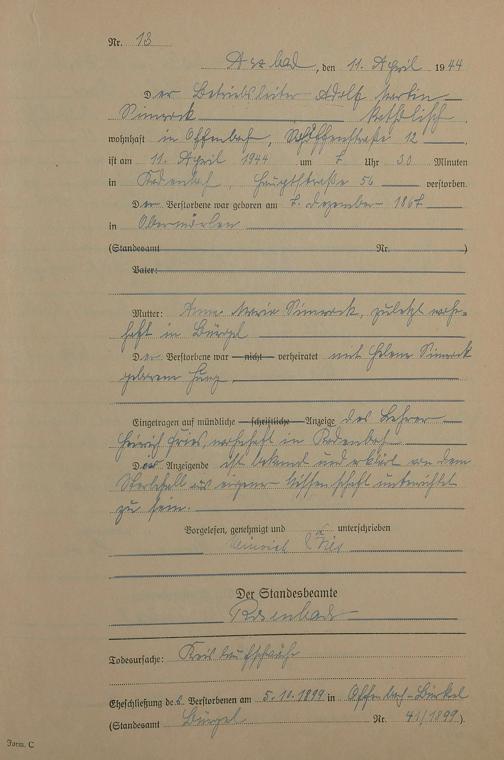 Nr. 18
den 11. April 1944
Der Betriebsleiter Adolf Martin
Simrock katholisch
wohnhaft in Offenbach, 12
ist am 11. April 1944 um 7 Uhr 30 Minuten
in Rodenbach, Hauptstraße 56 verstorben.
Der Verstorbene war geboren am 7. Dezember 1867
in Obermörlen
(Standesamt Nr. )
Vater:
Mutter: Anna Maria Simrock, zuletzt wohn-
haft in Bürgel
Der Verstorbene war nicht verheiratet mit Helene Simrock
geborene
Eingetragen auf mündliche schriftliche Anzeige des Lehrer
Heinrich Fries, wohnhaft in Rodenbach
Der Anzeigende ist bekannt und erklärt von dem
Sterbefall aus eigener Wissenschaft unterrichtet
zu sein.
Vorgelesen, genehmigt und unterschrieben
Heinrich Fries
Der Standesbeamte
Todesursache: Kreislaufschwäche
Eheschließung des Verstorbenen am 5.10.1899 in Offenbach-Bürgel
(Standesamt Bürgel Nr. 41/1899).
Form. C